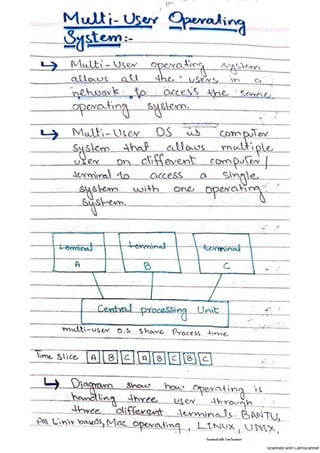 Multi-User Operating
System:-
↳ Multi-User operating system
allows all the users in a
network to access the same
operating system.
↳ Multi-User OS is computer
system that allows multiple
user on different computer/
terminal to access a single
system with one operating
system.
terminal terminal terminal
A B C
Central processing Unit
multi-user o.s share Process time
Time Slice A B C A B C B C
↳ Diagram show how operating is
handling three user through
three different terminals. BANTU,
All Linix bases, Mac operating, LINUX, UNIX,
Scanned with CamScanner
Scanned with CamScanner